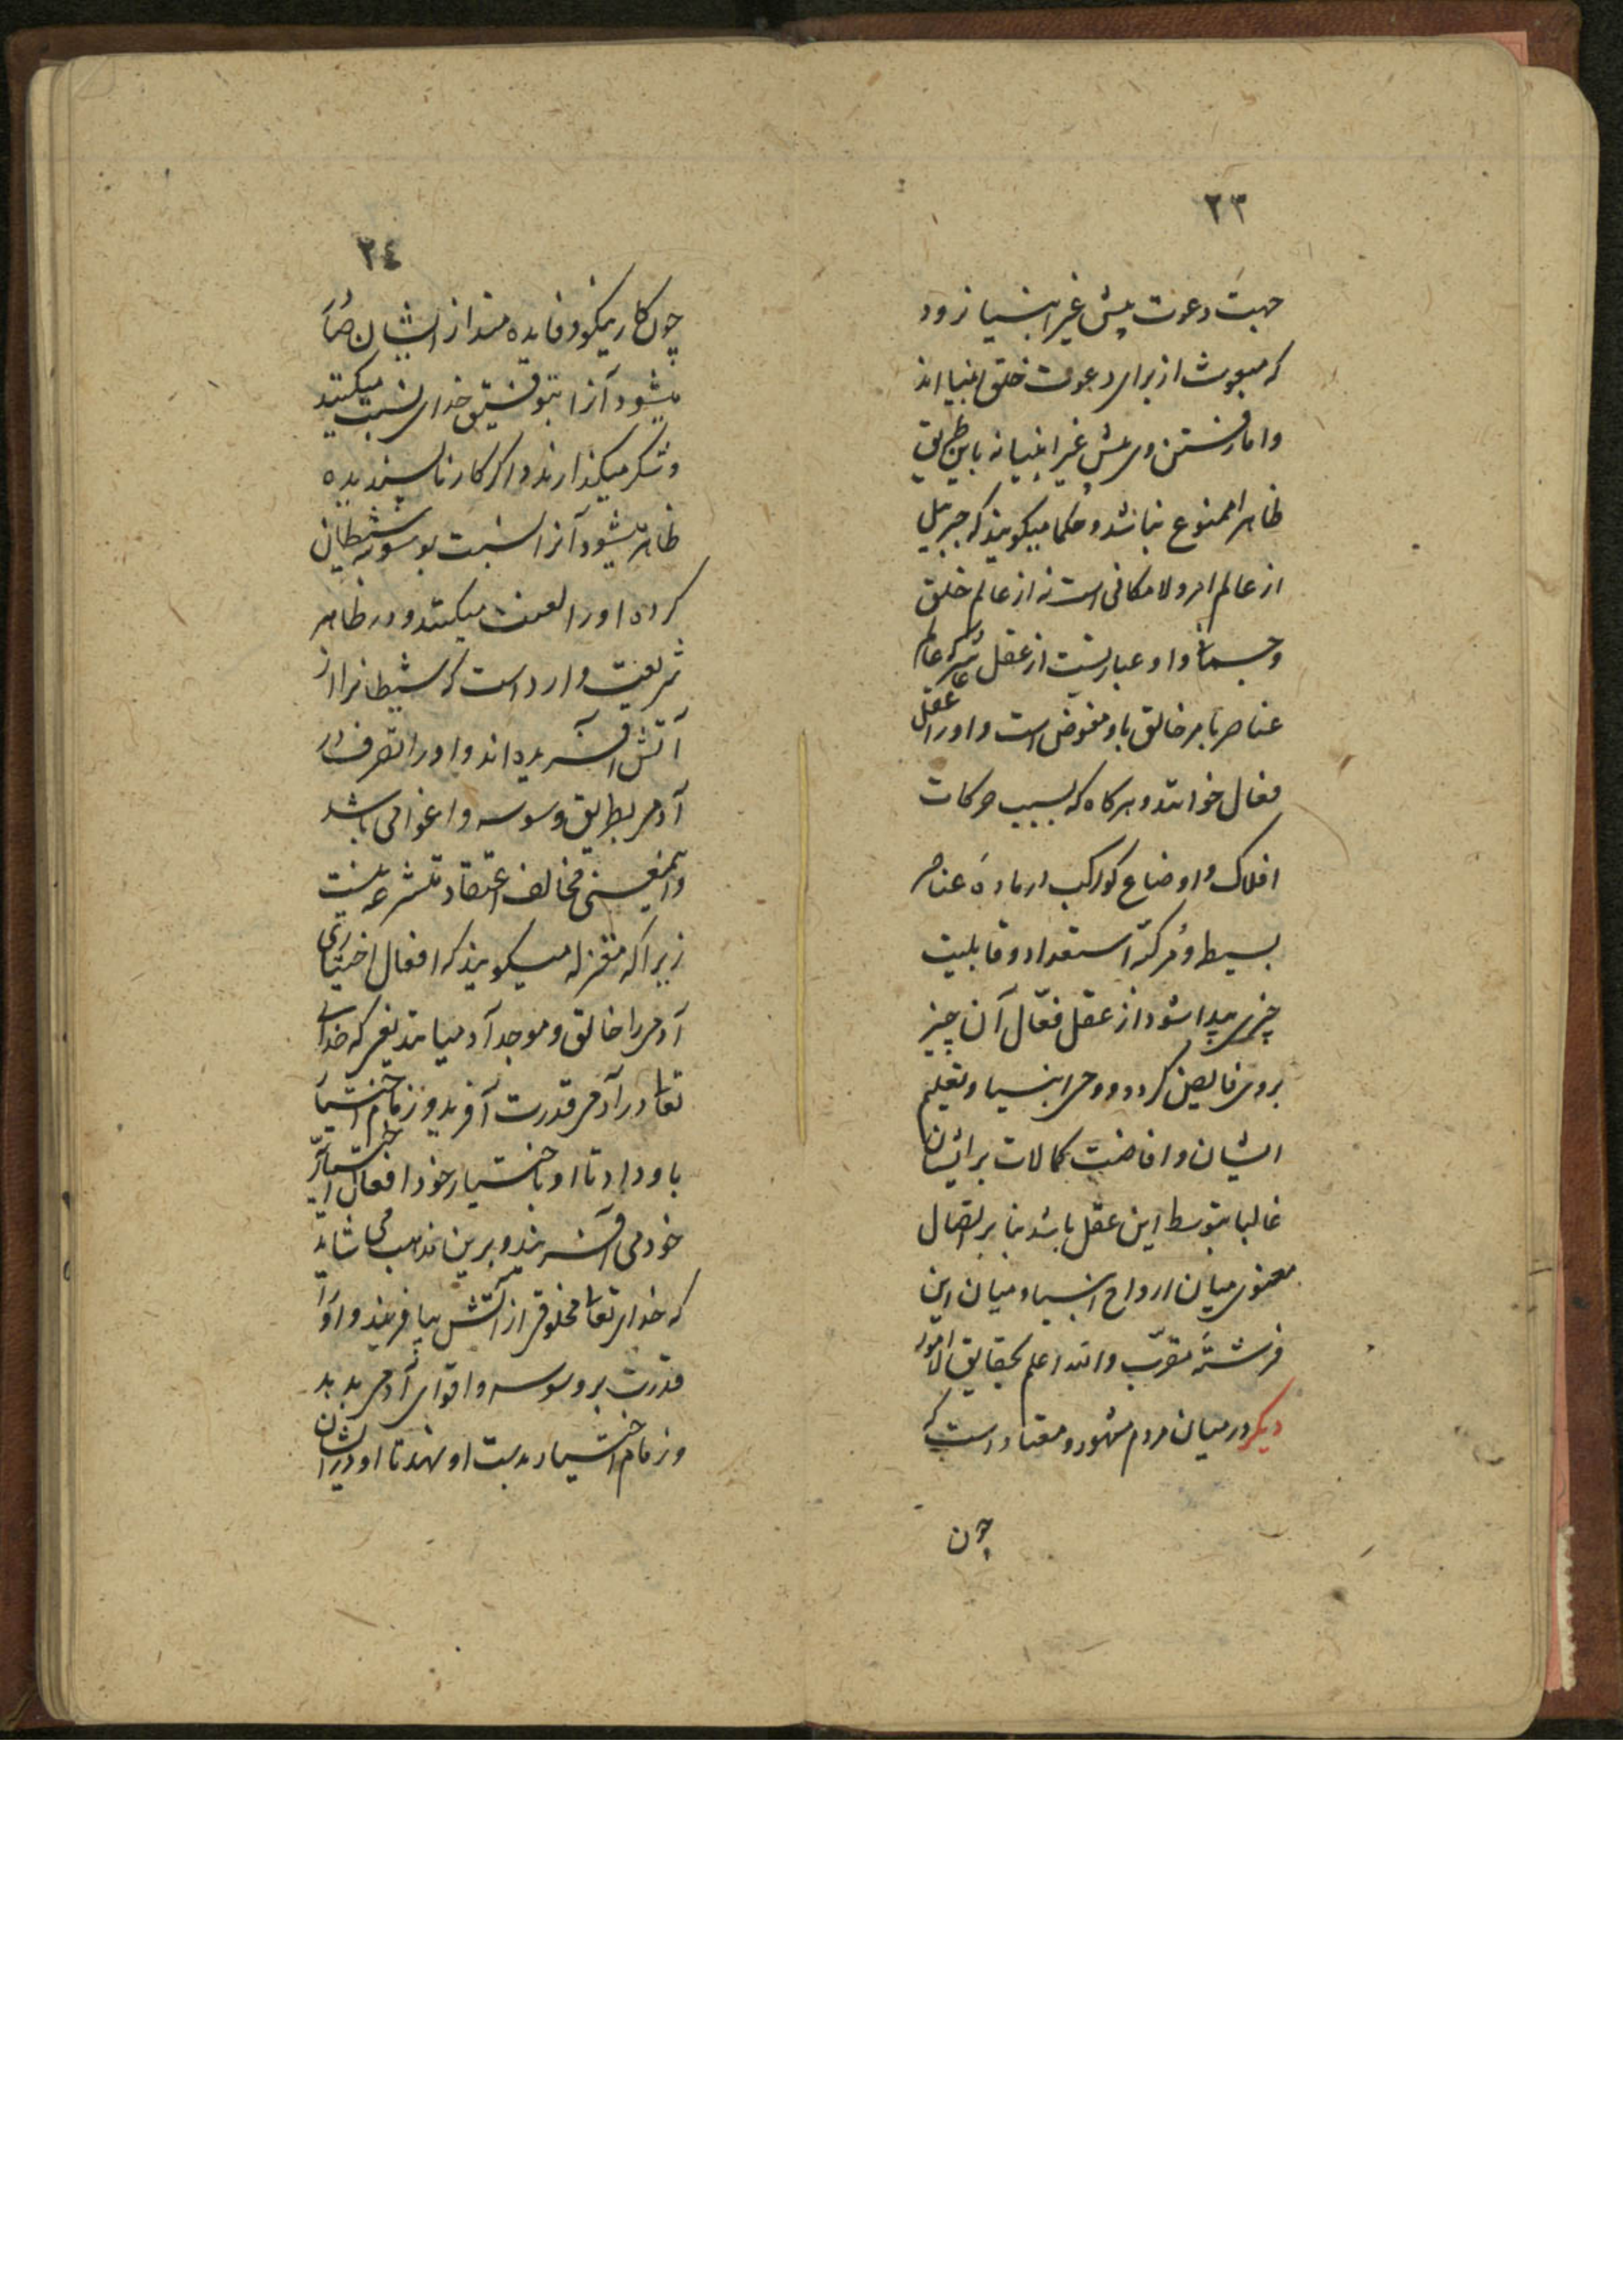 ۲۳
جهت دعوت پیش غیر انبیا نرود
که مبعوث از برای دعوت خلق انبیا اند
واما رفتن وی پیش غیر انبیا نه باین طریق
ظاهرا ممنوع نباشد و حکما میکویند که جبرییل
از عالم امر و لا مکانی است نه از عالم خلق
و جسمانی و او عبارتست از عقل عاشر که عالم
عناصر بامر خالق باو مفوض است و او را عقل
فعال خوانند و هرکاه که بسبب حرکات
افلاک و اوضاع کواکب در مادۀ عناصر
بسیط و مرکبه استعداد و قابلیت
چیزی پیدا شود از عقل فعّال آن چیز
بروی فایض کردد و وحی انبیا و تعلیم
ایشان و افاضت کمالات بر ایشان
غالبا بتوسط این عقل باشد بنا بر اتصال
معنوی میان ارواح انبیا و میان این
فرشتۀ مقرّب والله اعلم بحقایق الامور
دیکر در میان مردم مشهور و معتاد است که
چون
۲٤
چون کار نیکو و فایده مند از ایشان صادر
میشود آنرا بتوفیق خدای نسبت میکنند
و شکر میکذارند و اکر کار ناپسندیده
ظاهر میشود آنرا نسبت بوسوسه شیطان
کرده او را لعنت میکنند و در ظاهر
شریعت وارد است که شیطانرا از
آتش آفریده اند و او را تصرف در
آدمی بطریق وسوسه و اغوا می باشد
واینمعنی مخالف اعتقاد متشرعه نیست
زیرا که معتزله میکویند که افعال اختیاری
آدمی را خالق و موجد آدمیانند یعنی که خدای
تعالی در آدمی قدرت آفرید و زمام اختیار
باو داد تا او باختیار خود افعال اختیاری
خود می آفریند و برین مذهب می شاید
که خدای تعالی مخلوقی از آتش بیافریند و او را
قدرت بر وسوسه و اغوای آدمی بدهد
و زمام اختیار بدست او نهد تا او در ایشان